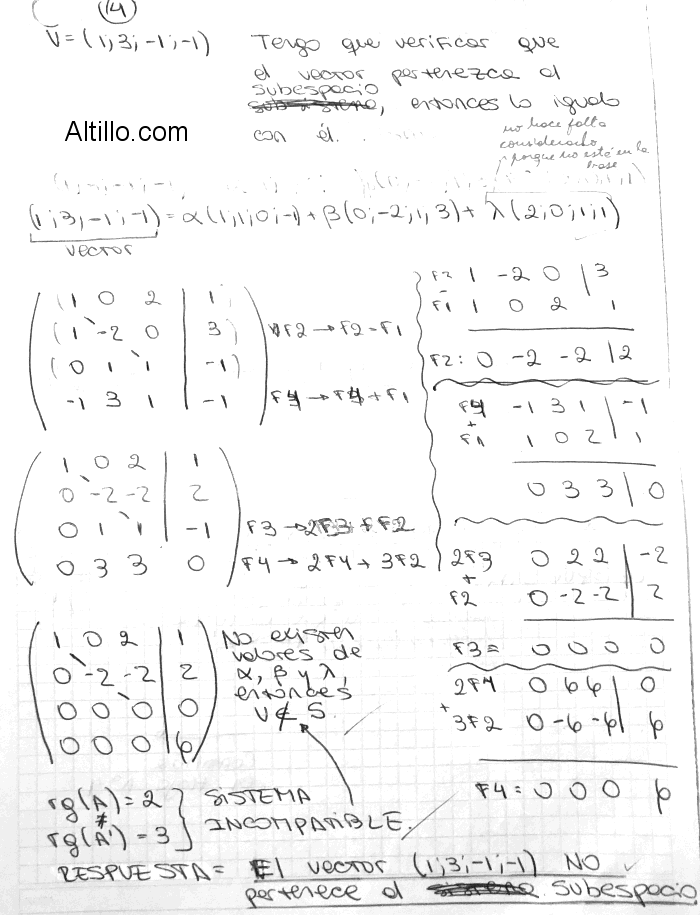 14
V̄ = (1; 3; -1; -1) Tengo que verificar que
el vector pertenezca al
subespacio
, entonces lo igualo
con él.
Altillo.com
no hace falta
considerarlo
porque no esté en la
base
(1; 3; -1; -1) = α(1; 1; 0; -1) + β(0; -2; 1, 3) + λ(2; 0; 1; 1)
vector
1 0 2 | 1
1 -2 0 | 3 F2 → F2 - F1
0 1 1 | -1
-1 3 1 | -1 F4 → F4 + F1
F2 1 -2 0 | 3
-
F1 1 0 2 1
F2: 0 -2 -2 | 2
F4 -1 3 1 | -1
+
F1 1 0 2 | 1
0 3 3 | 0
1 0 2 | 1
0 -2 -2 | 2
0 1 1 | -1 F3 → 2F3 + F2
0 3 3 0 F4 → 2F4 + 3F2
2F3 0 2 2 | -2
+
F2 0 -2 -2 | 2
F3 = 0 0 0 0
1 0 2 | 1 No existen
0 -2 -2 | 2 valores de
0 0 0 | 0 α, β y λ,
0 0 0 | 6 entonces
V ∉ S.
2F4 0 6 6 | 0
+
3F2 0 -6 -6 | 6
F4 = 0 0 0 6
rg(A) = 2 SISTEMA
≠
rg(A') = 3 INCOMPATIBLE.
RESPUESTA = El vector (1; 3; -1; -1) NO
pertenece al subespacio